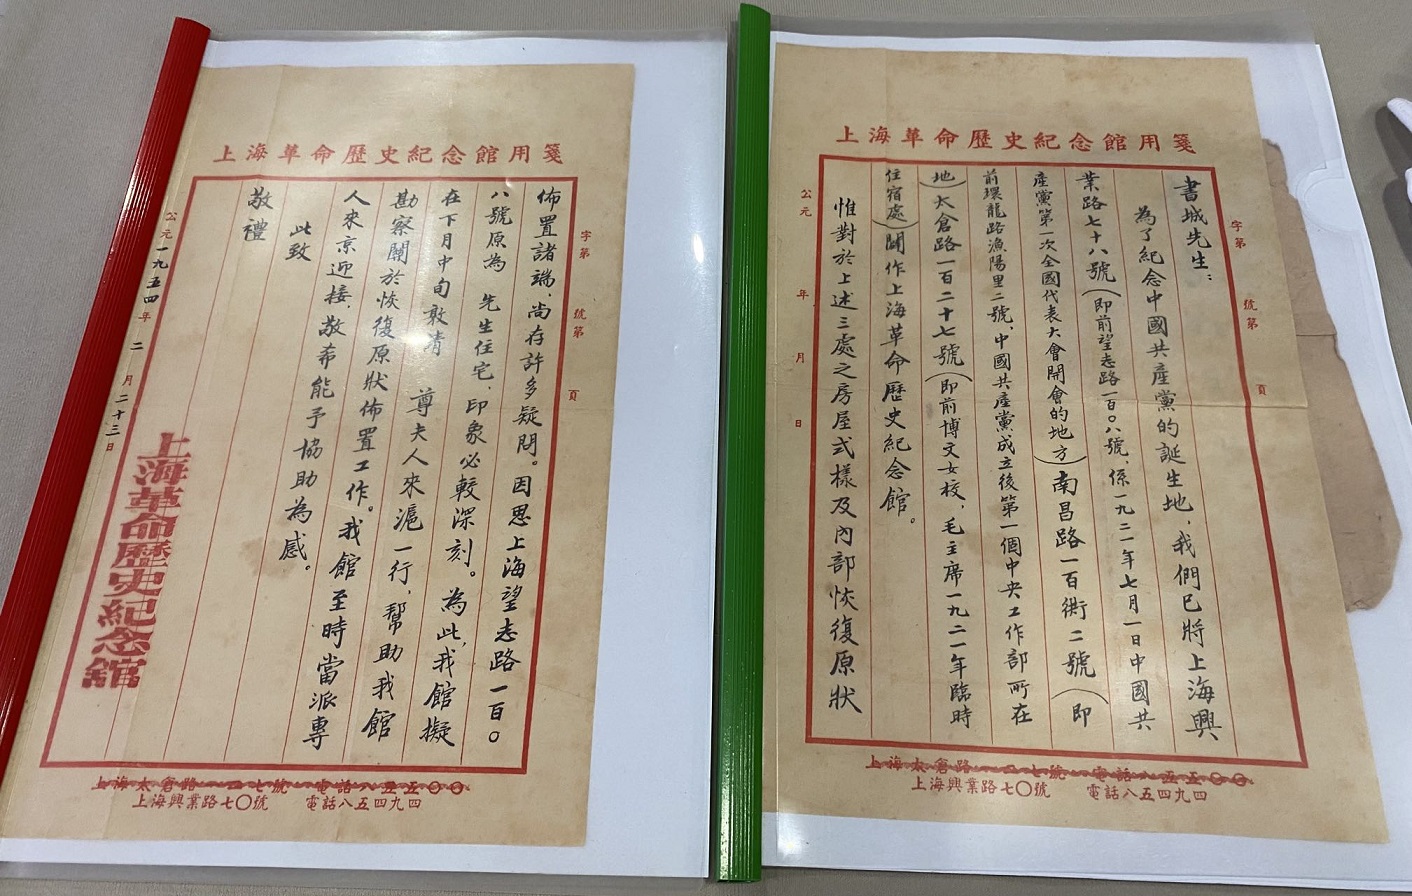 上海革命歷史紀念館用箋
字第 號第 頁
書城先生：
為了紀念中國共產黨的誕生地，我們已將上海興
業路七十八號（即前望志路一百〇八號，係一九二一年七月一日中國共
產黨第一次全國代表大會開會的地方）南昌路一百衖二號（即
前環龍路漁陽里二號，中國共產黨成立後第一個中央工作部所在
地）太倉路一百二十七號（即前博文女校，毛主席一九二一年臨時
住宿處）闢作上海革命歷史紀念館。
惟對於上述三處之房屋式樣及內部恢復原狀
公元 年 月 日
上海太倉路一二七號 電話八五五〇〇
上海興業路七〇號 電話八五四九四
上海革命歷史紀念館用箋
字第 號第 頁
佈置諸端，尚存許多疑問。因思上海望志路一百〇
八號原為 先生住宅，印象必較深刻。為此，我館擬
在下月中旬敦請 尊夫人來滬一行，幫助我館
勘察關於恢復原狀佈置工作。我館至時當派專
人來京迎接，敬希能予協助為感。
此致
敬禮
上海革命歷史紀念館
公元一九五四年二月二十三日
上海太倉路一二七號 電話八五五〇〇
上海興業路七〇號 電話八五四九四